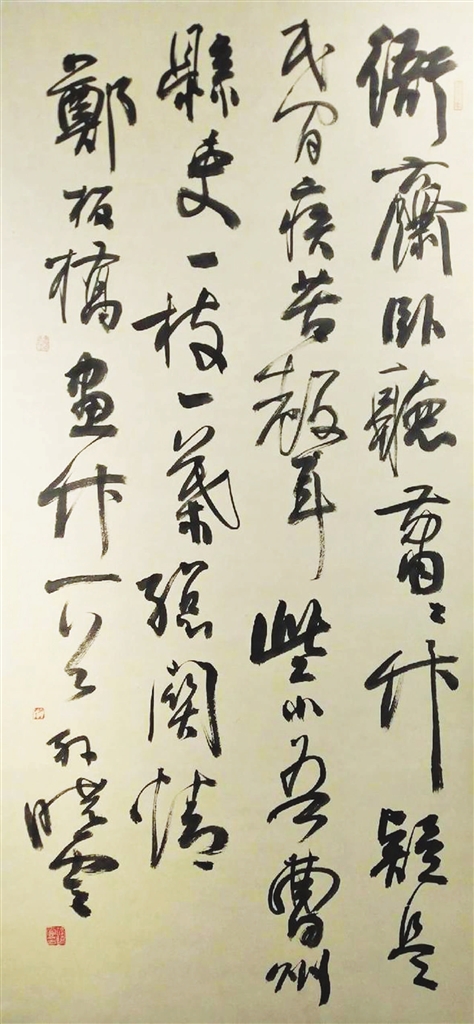 衙齋臥聽蕭々竹疑是
民間疾苦聲些小吾曹州
縣吏一枝一葉總關情
鄭板橋畫竹一首孫曉雲